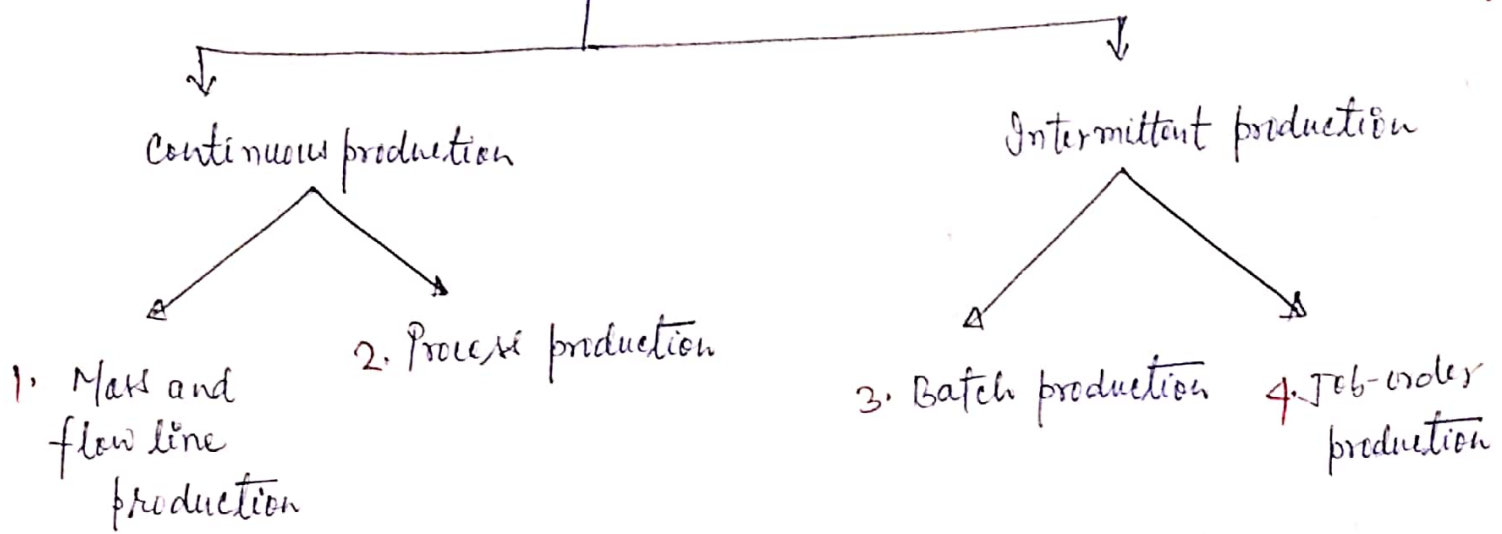 Continuous production
Intermittent production
1. Mass and
flow line
production
2. Process production
3. Batch production
4. Job-order
production